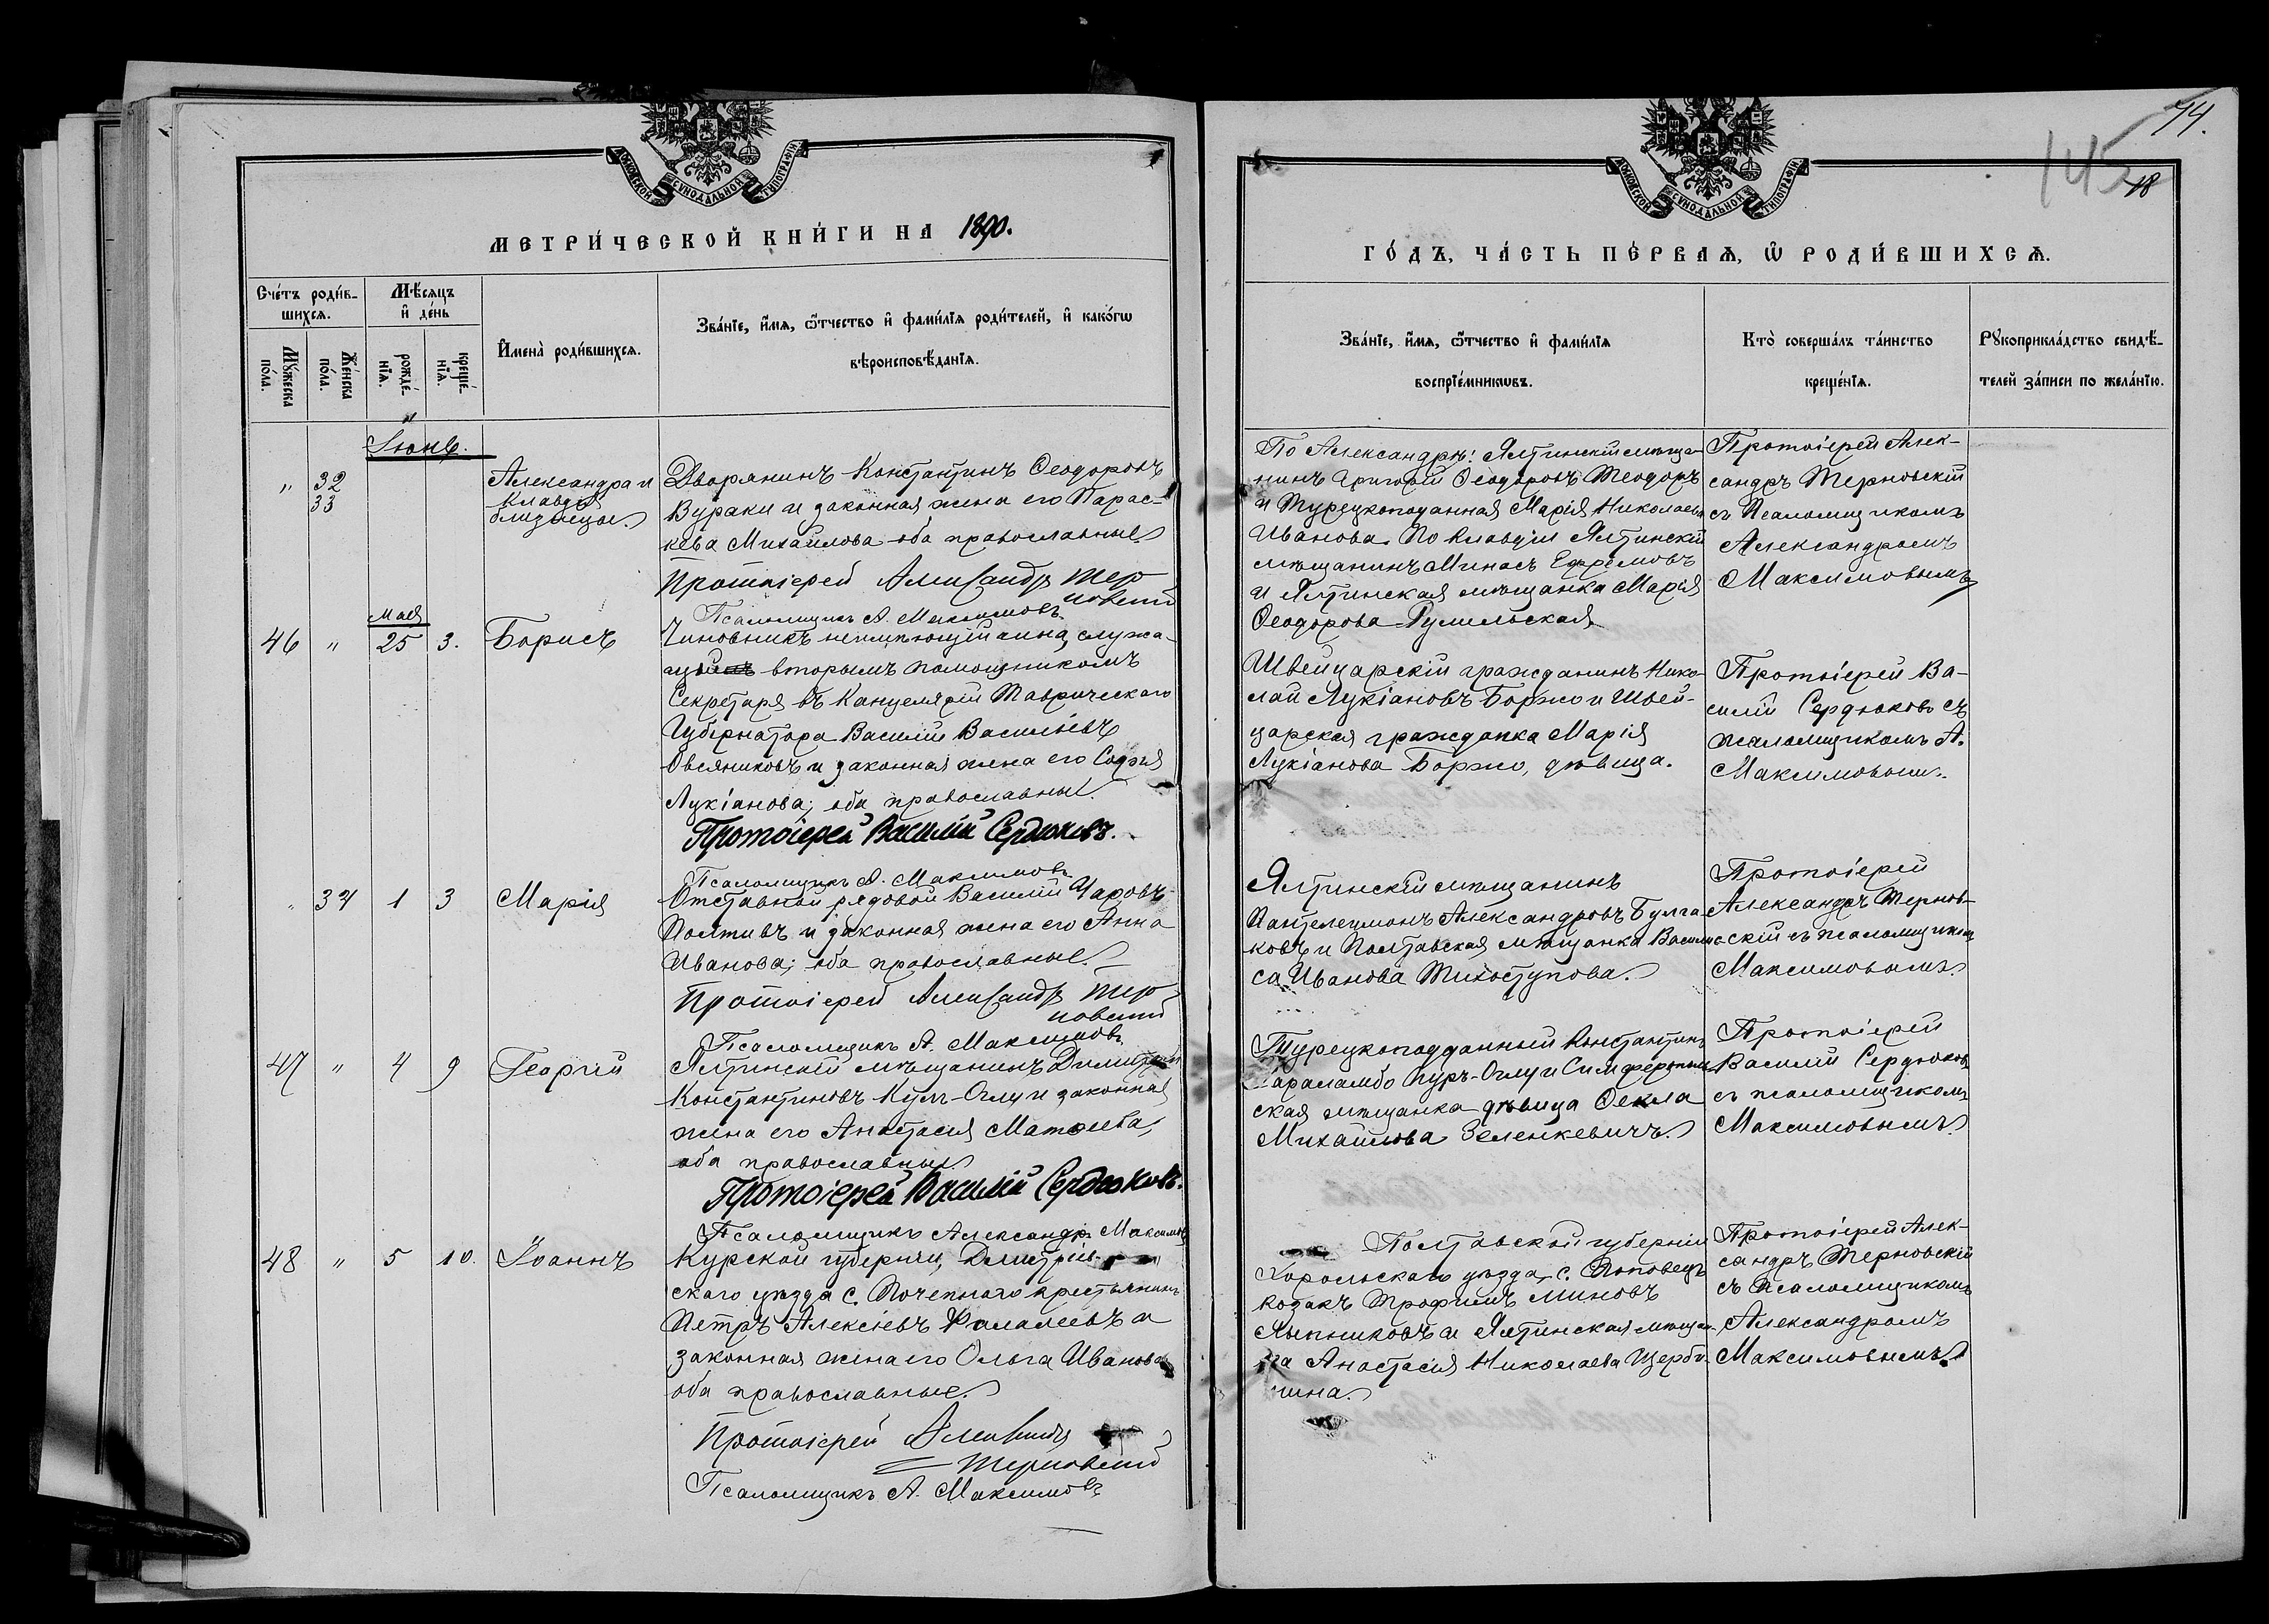 МЕТРИ́ЧЕСКОЙ КНИ́ГИ НА 1890.
Сче́тъ роди́в-
шихсѧ.
Мѣ́сѧцъ
и҆ де́нь
Мꙋ́жеска
по́ла.
Же́нска
по́ла.
рожде́-
нїѧ.
креще́-
нїѧ.
И҆мена̀ роди́вшихсѧ.
Зва́нїе, и҆́мѧ, ѻ҆́тчество и҆ фами́лїѧ роди́телей, и҆ како́гѡ
вѣроисповѣ́данїѧ.
Іюнь.
" 32
33
Александра и
Клавдія
близнецы.
Дворянинъ Константинъ Ѳеодоровъ
Вураки и законная жена его Парас-
кева Михайлова оба православные
Протоіерей Александръ Тер
новскій
Псаломщикъ А. Максимовъ
Мая
46 " 25 3. Борисъ
Чиновникъ неимѣющій чина, служа-
щій вторымъ помощникомъ
Секретаря въ Канцеляріи Таврическаго
Губернатора Василій Васильевъ
Овсяниковъ и законная жена его Софія
Лукіанова; оба православные.
Протоіерей Василій Сердюковъ.
Псаломщикъ А. Максимовъ
" 34 1 3 Марія
Отставной рядовой Василій
и законная жена его Анна
Иванова; оба православные.
Протоіерей Александръ Тер
новскій
Псаломщикъ А. Максимовъ
47 " 4 9 Георгій
Ялтинскій мѣщанинъ Димитрій
Константиновъ Оглу и законная
жена его Анастасія Матѳеева,
оба православные
Протоіерей Василій Сердюковъ.
Псаломщикъ Александръ Максимовъ
48 " 5 10. Іоаннъ
Курской губерніи, Дмитріев-
скаго уѣзда с. Почепнаго крестьянинъ
Петръ Алексіевъ Фалалеевъ и
законная жена его Ольга Иванова
оба православные.
Протоіерей Александръ
Терновскій
Псаломщикъ А. Максимовъ
74.
145
18
ГО́ДЪ, ЧА́СТЬ ПЕ́РВАѦ, Ѡ҆ РОДИ́ВШИХСѦ.
Зва́нїе, и҆́мѧ, ѻ҆́тчество и҆ фами́лїѧ
воспрїе́мникѡвъ.
Кто̀ соверша́лъ та́инство
креще́нїѧ.
Рꙋкоприкла́дство свидѣ́-
телей за́писи по жела́нїю.
По Александрѣ: Ялтинскій мѣща-
нинъ Григорій Ѳеодоровъ Теодоръ
и Турецкоподанная Марія Николаева
Иванова. По Клавдіи Ялтинскій
мѣщанинъ Минасъ Ефремовъ
и Ялтинская мѣщанка Марія
Ѳеодорова
Протоіерей Алек-
сандръ Терновскій
съ Псаломщикомъ
Александромъ
Максимовымъ
Швейцарскій гражданинъ Нико-
лай Лукіановъ Боржо и Швей-
царская гражданка Марія
Лукіанова Боржо, дѣвица.
Протоіерей Ва-
силій Сердюковъ съ
псаломщикомъ А.
Максимовымъ.
Ялтинскій мѣщанинъ
Пантелеимонъ Александровъ Булга-
ковъ и Полтавская мѣщанка Васили-
са Иванова Тихоступова.
Протоіерей
Александръ Тернов-
скій съ псаломщикомъ
Максимовымъ.
Турецкоподданный Константинъ
Хараламбо Оглу и Симферополь-
ская мѣщанка дѣвица Ѳекла
Михайлова Зеленкевичъ.
Протоіерей
Василій Сердюковъ
съ псаломщикомъ
Максимовымъ.
Полтавской губерніи
Хорольскаго уѣзда, с. Поповецъ
козакъ Трофимъ Миновъ
и Ялтинская мѣщан-
ка Анастасія Николаева Щерби-
нина.
Протоіерей Алек-
сандръ Терновскій
съ Псаломщикомъ
Александромъ
Максимовымъ.